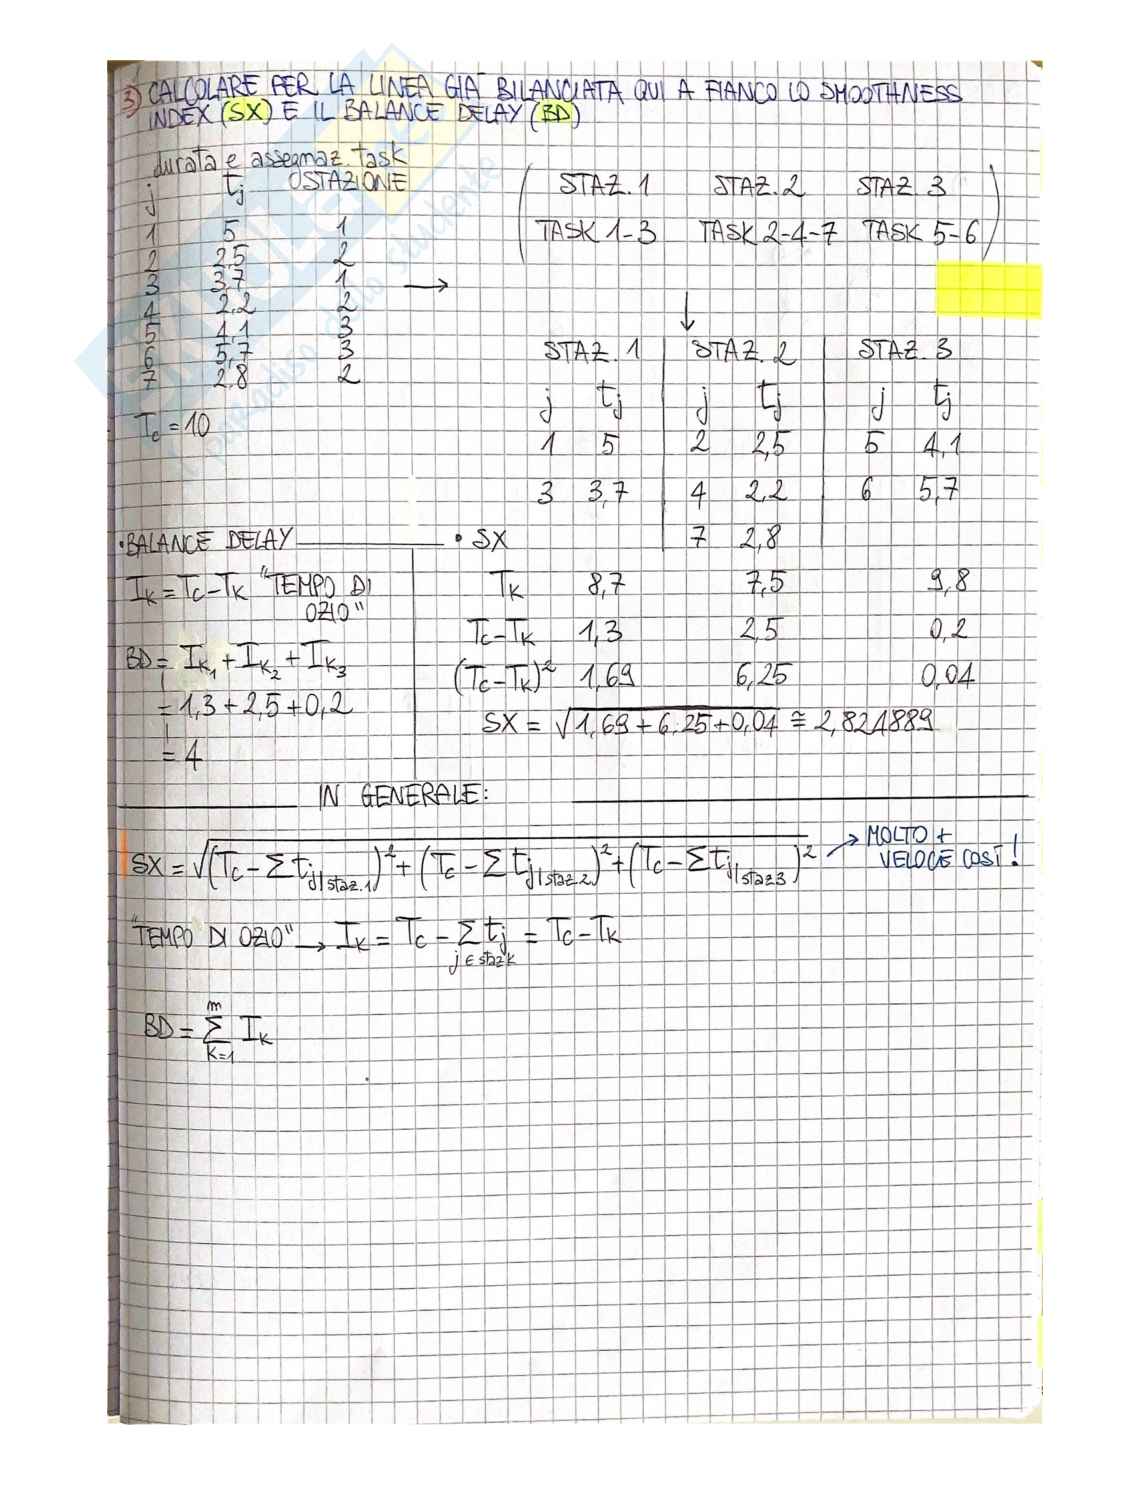 3) CALCOLARE PER LA LINEA GIÀ BILANCIATA QUI A FIANCO LO SMOOTHNESS
INDEX (SX) E IL BALANCE DELAY (BD)
durata e assegnaz. task
j tj STAZIONE
1 5 1
2 2,5 2
3 3,7 1
4 2,2 2
5 4,1 3
6 5,7 3
7 2,8 2
Tc = 10
STAZ. 1 STAZ. 2 STAZ 3
TASK 1-3 TASK 2-4-7 TASK 5-6
STAZ. 1 STAZ. 2 STAZ. 3
j tj j tj j tj
1 5 2 2,5 5 4,1
3 3,7 4 2,2 6 5,7
7 2,8
• BALANCE DELAY
IK = Tc - TK "TEMPO DI
OZIO"
BD = IK1 + IK2 + IK3
= 1,3 + 2,5 + 0,2
= 4
• SX
TK 8,7 7,5 9,8
Tc - TK 1,3 2,5 0,2
(Tc - TK)² 1,69 6,25 0,04
SX = √(1,69 + 6,25 + 0,04) ≅ 2,824889
IN GENERALE:
SX = √((Tc - Σ tj|staz.1)² + (Tc - Σ tj|staz.2)² + (Tc - Σ tj|staz3)²) → MOLTO +
VELOCE COSÌ!
"TEMPO DI OZIO" → IK = Tc - Σ tj = Tc - TK
j ∈ staz k
BD = Σ IK
m
K=1
il paradiso dello studente